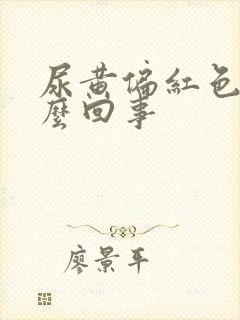 尿黄偏紅色
麼回事
廖景平